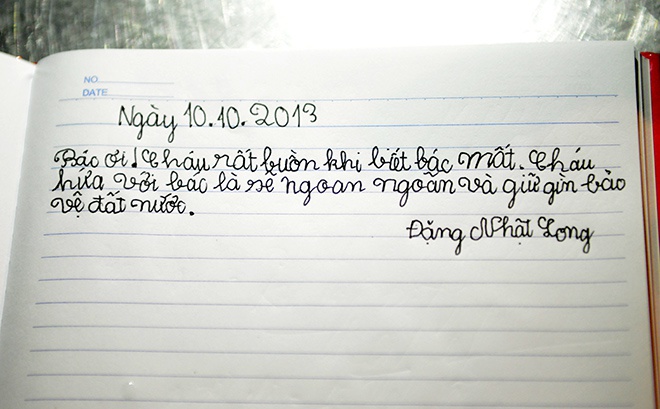 NO
DATE
Ngày 10.10.2013
Bác ơi! Cháu rất buồn khi biết bác mất. Cháu
hứa với bác là sẽ ngoan ngoãn và giữ gìn bảo
vệ đất nước.
Đặng Nhật Long